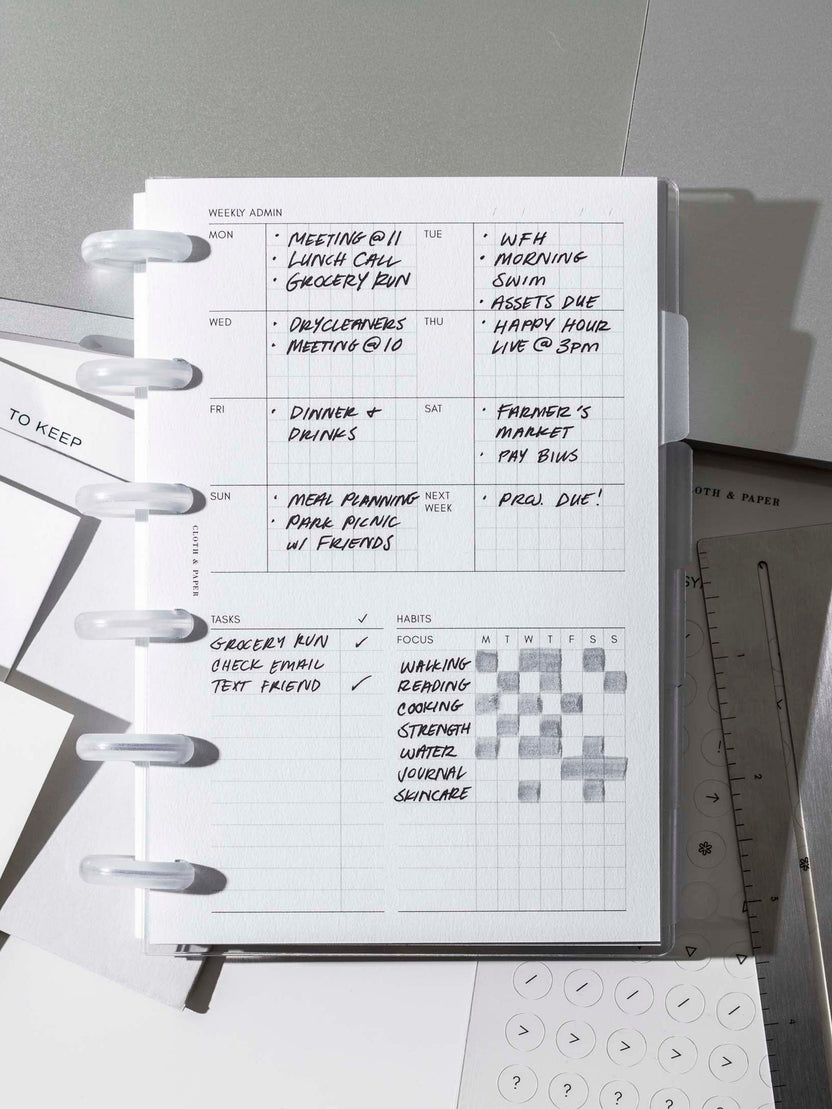 WEEKLY ADMIN
MON
• MEETING @ 11
• LUNCH CALL
• GROCERY RUN
TUE
• WFH
• MORNING
SWIM
• ASSETS DUE
WED
• DRYCLEANERS
• MEETING @ 10
THU
• HAPPY HOUR
LIVE @ 3PM
FRI
• DINNER +
DRINKS
SAT
• FARMER'S
MARKET
• PAY BILLS
SUN
• MEAL PLANNING
• PARK PICNIC
W/ FRIENDS
NEXT
WEEK
• PROJ. DUE!
TASKS ✓
GROCERY RUN ✓
CHECK EMAIL
TEXT FRIEND ✓
HABITS
FOCUS M T W T F S S
WALKING
READING
COOKING
STRENGTH
WATER
JOURNAL
SKINCARE
CLOTH & PAPER
TO KEEP
CLOTH & PAPER
1
2
3
4
! 
? ? ? ?